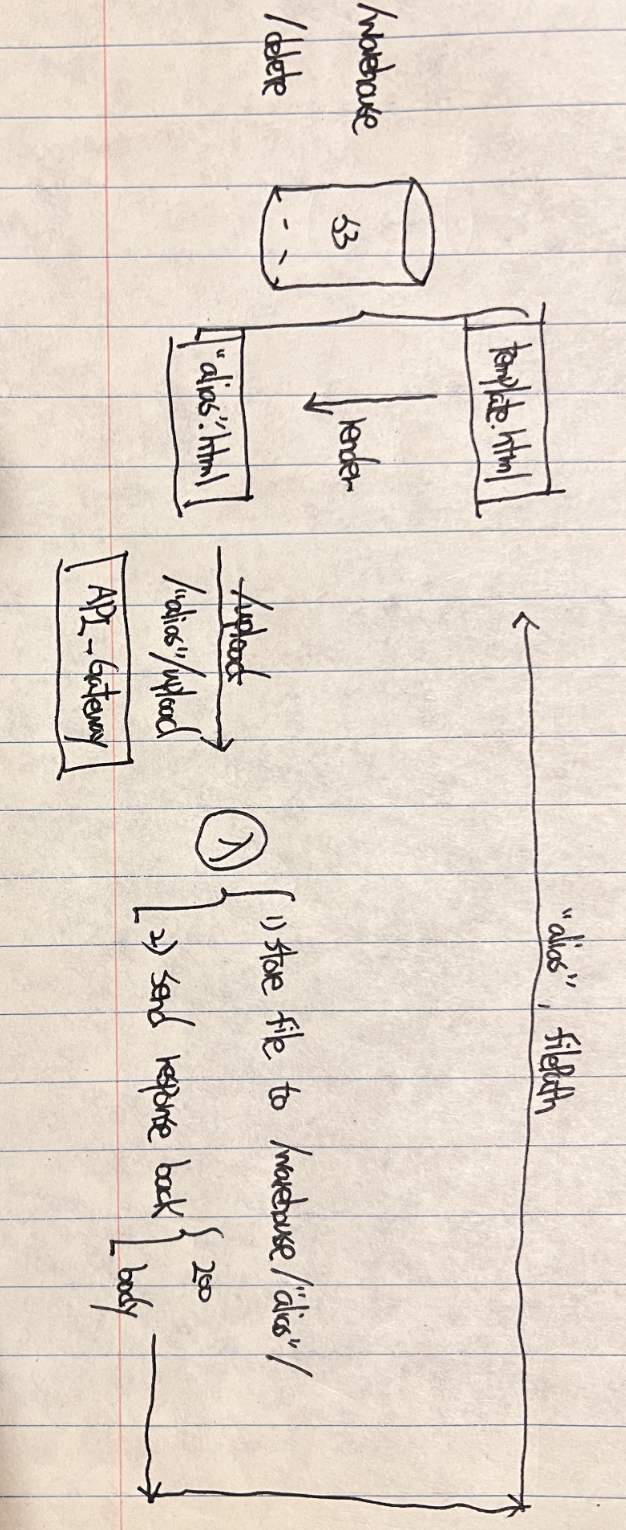 /warehouse
/delete
S3
template.html
render
"alias".html
/upload
/"alias"/upload
API-Gateway
"alias", filePath
λ
1) store file to /warehouse/"alias"/
2) send response back
200
body